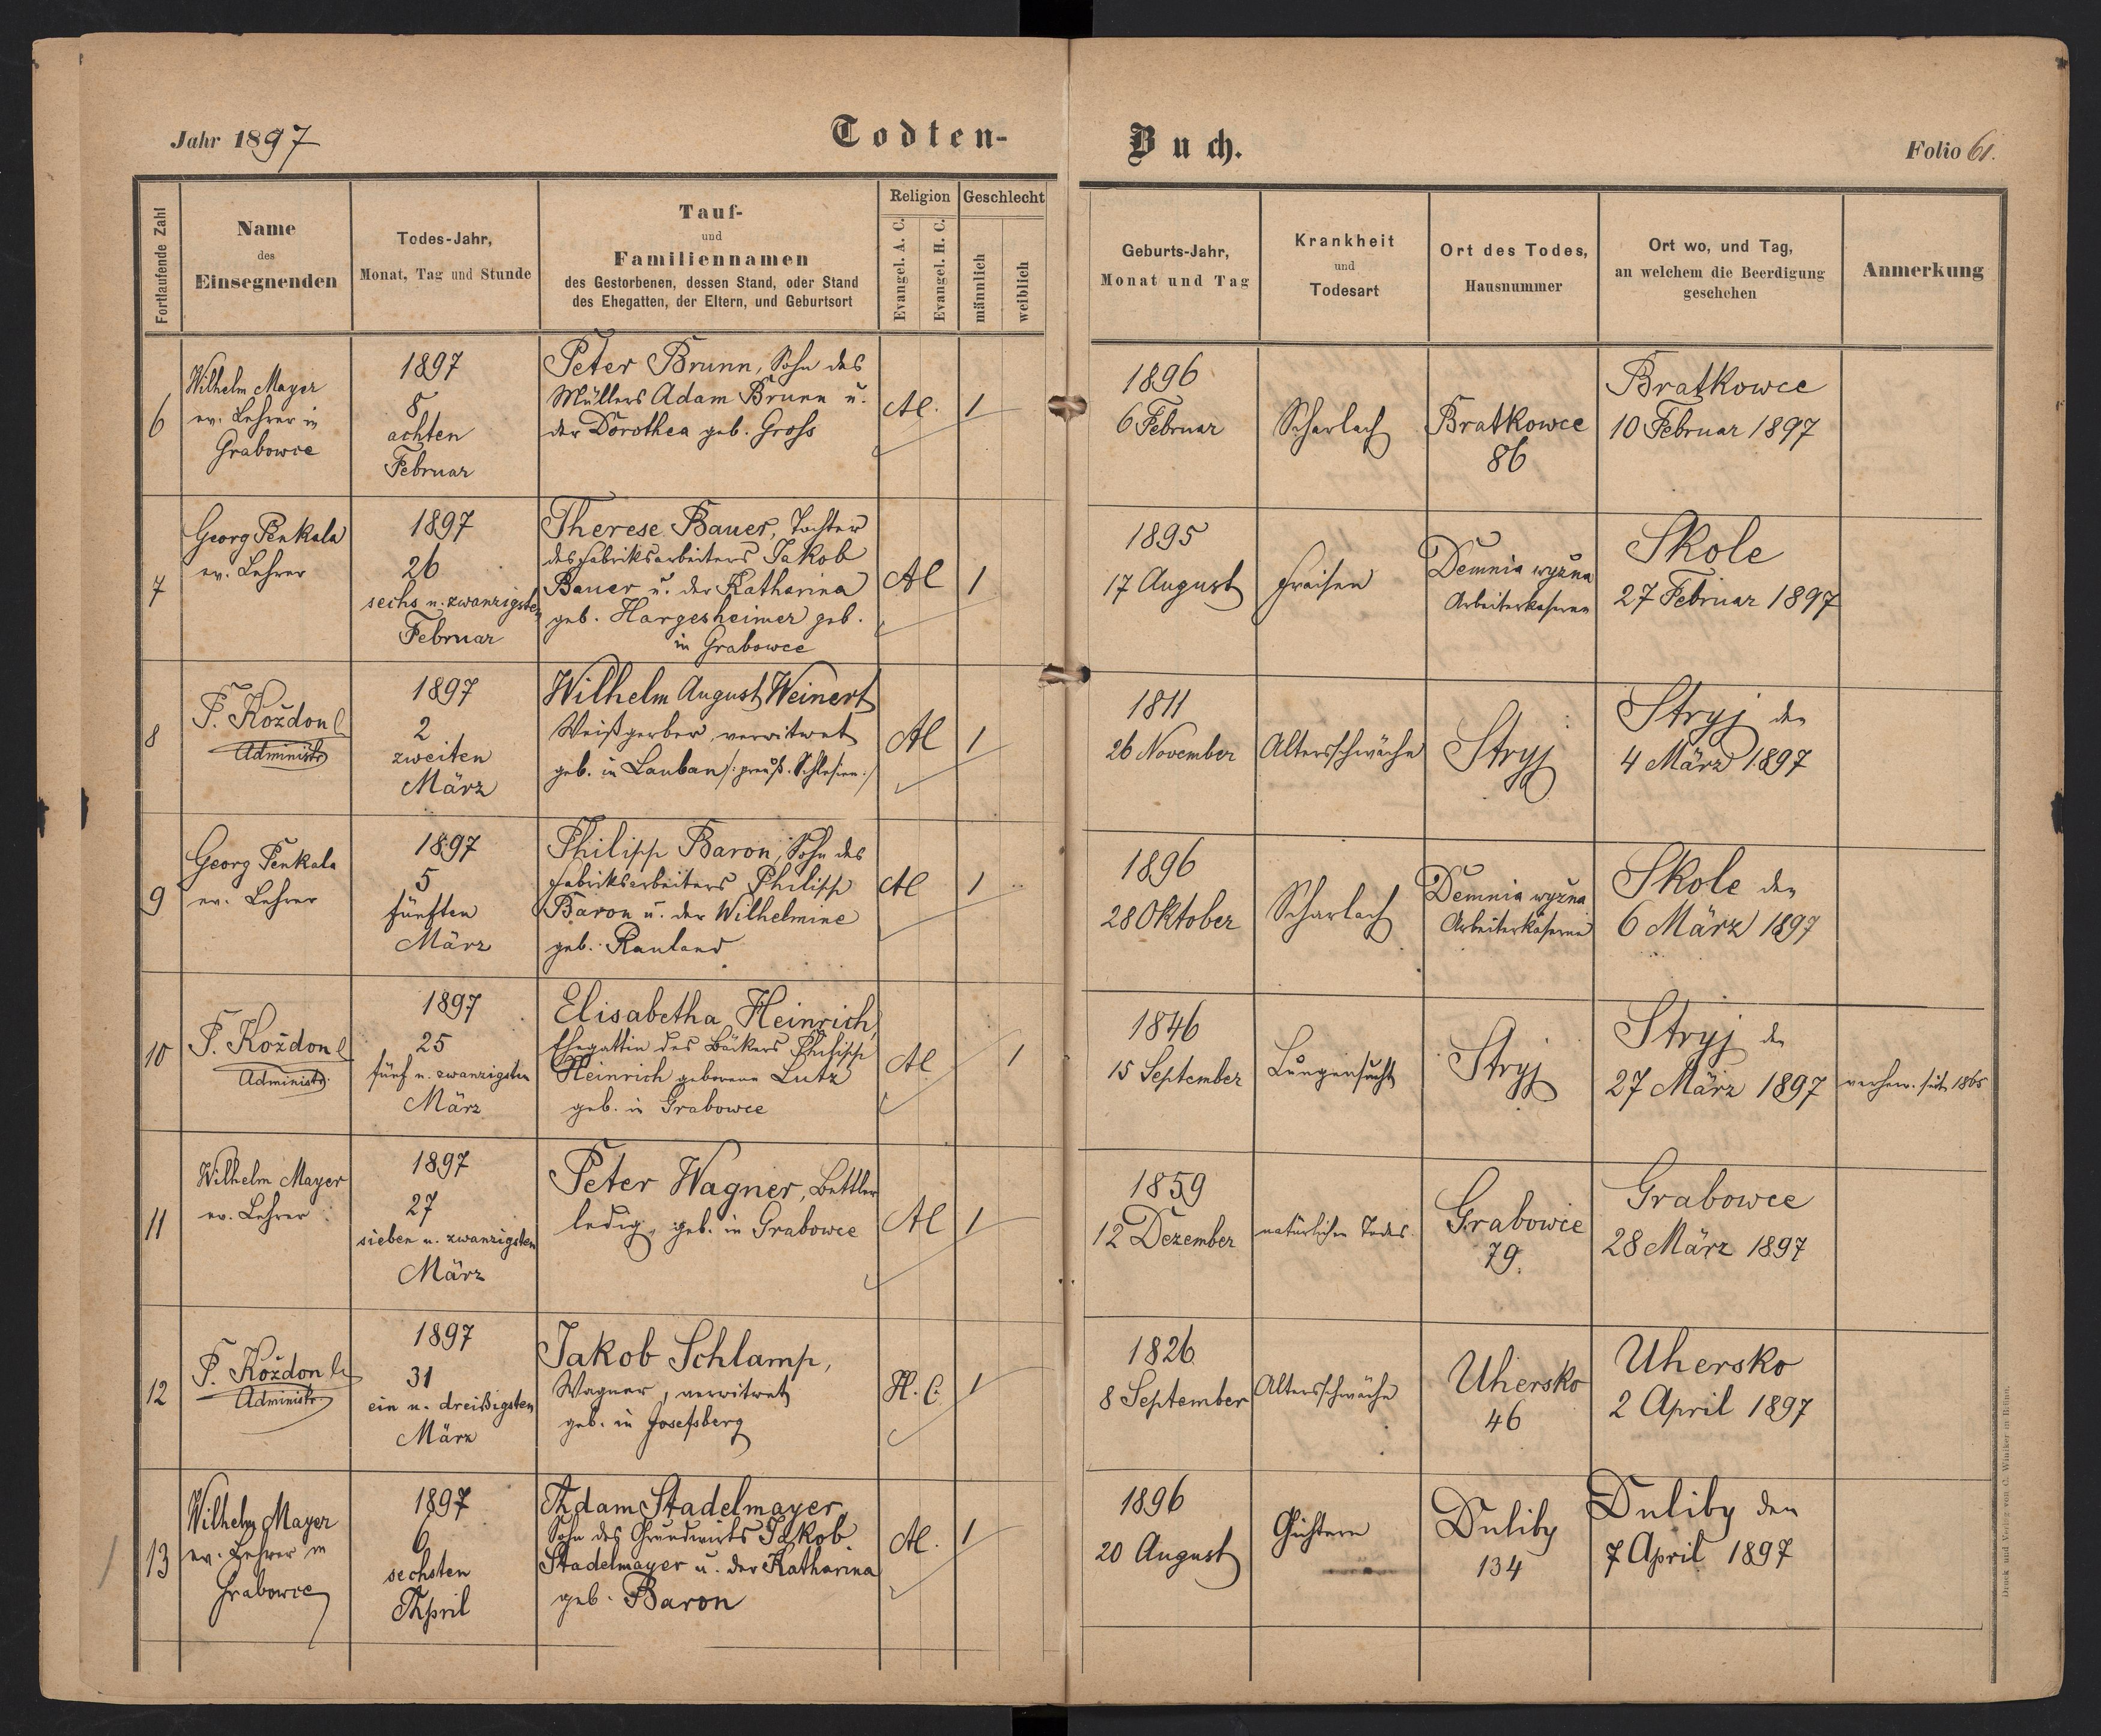 Jahr 1897
Todten-
Buch.
Folio 61.
Fortlaufende Zahl
Name
des
Einsegnenden
Todes-Jahr,
Monat, Tag und Stunde
Tauf-
und
Familiennamen
des Gestorbenen, dessen Stand, oder Stand
des Ehegatten, der Eltern, und Geburtsort
Religion
Evangel. A. C.
Evangel. H. C.
Geschlecht
männlich
weiblich
Geburts-Jahr,
Monat und Tag
Krankheit
und
Todesart
Ort des Todes,
Hausnummer
Ort wo, und Tag,
an welchem die Beerdigung
geschehen
Anmerkung
6
Wilhelm Mayer
ev. Lehrer in
Grabowce
1897
8
achten
Februar
Peter Brunn, Sohn des
Müllers Adam Brunn u.
der Dorothea geb. Groß
1
1896
6 Februar
Scharlach
Bratkowce
86
Bratkowce
10 Februar 1897
7
Georg Penkala
ev. Lehrer
1897
26
sechs u. zwanzigsten
Februar
Therese Bauer, Tochter
des Fabriksarbeiters Jakob
Bauer u. der Katharina
geb. Hargesheimer geb.
in Grabowce
1
1895
17 August
Fraisen
Demnia wyżna
Arbeiterkaserne
Skole
27 Februar 1897
8
Kożdon
Administr.
1897
2
zweiten
März
Wilhelm August Weinert
Weißgerber, verwitwet
geb. in Lauban /: preuß. Schlesien :/
1
1811
26 November
Altersschwäche
Stryj
Stryj den
4 März 1897
9
Georg Penkala
ev. Lehrer
1897
5
fünften
März
Philipp Baron, Sohn des
Fabriksarbeiters Philipp
Baron u. der Wilhelmine
geb. Rauland
1
1896
28 Oktober
Scharlach
Demnia wyżna
Arbeiterkaserne
Skole den
6 März 1897
10
Kożdon
Administr.
1897
25
fünf u. zwanzigsten
März
Elisabetha Heinrich,
Ehegattin des Bäckers Philipp
Heinrich geborene Lutz
geb. in Grabowce
1
1846
15 September
Lungensucht
Stryj
Stryj den
27 März 1897
verhew. seit 1865
11
Wilhelm Mayer
ev. Lehrer
1897
27
sieben u. zwanzigsten
März
Peter Wagner, Bettler
ledig, geb. in Grabowce
1
1859
12 Dezember
natürlichen Todes
Grabowce
79.
Grabowce
28 März 1897
12
Kożdon
Administr.
1897
31
ein u. dreißigsten
März
Jakob Schlamp,
Wagner, verwitwet
geb. in Josefsberg
H. C.
1
1826
8 September
Altersschwäche
Uhersko
46
Uhersko
2 April 1897
13
Wilhelm Mayer
ev. Lehrer in
Grabowce
1897
6
sechsten
April
Adam Stadelmayer
Sohn des Grundwirts Jakob
Stadelmayer u. der Katharina
geb. Baron
1
1896
20 August
Gichtern
Duliby
134
Duliby den
7 April 1897